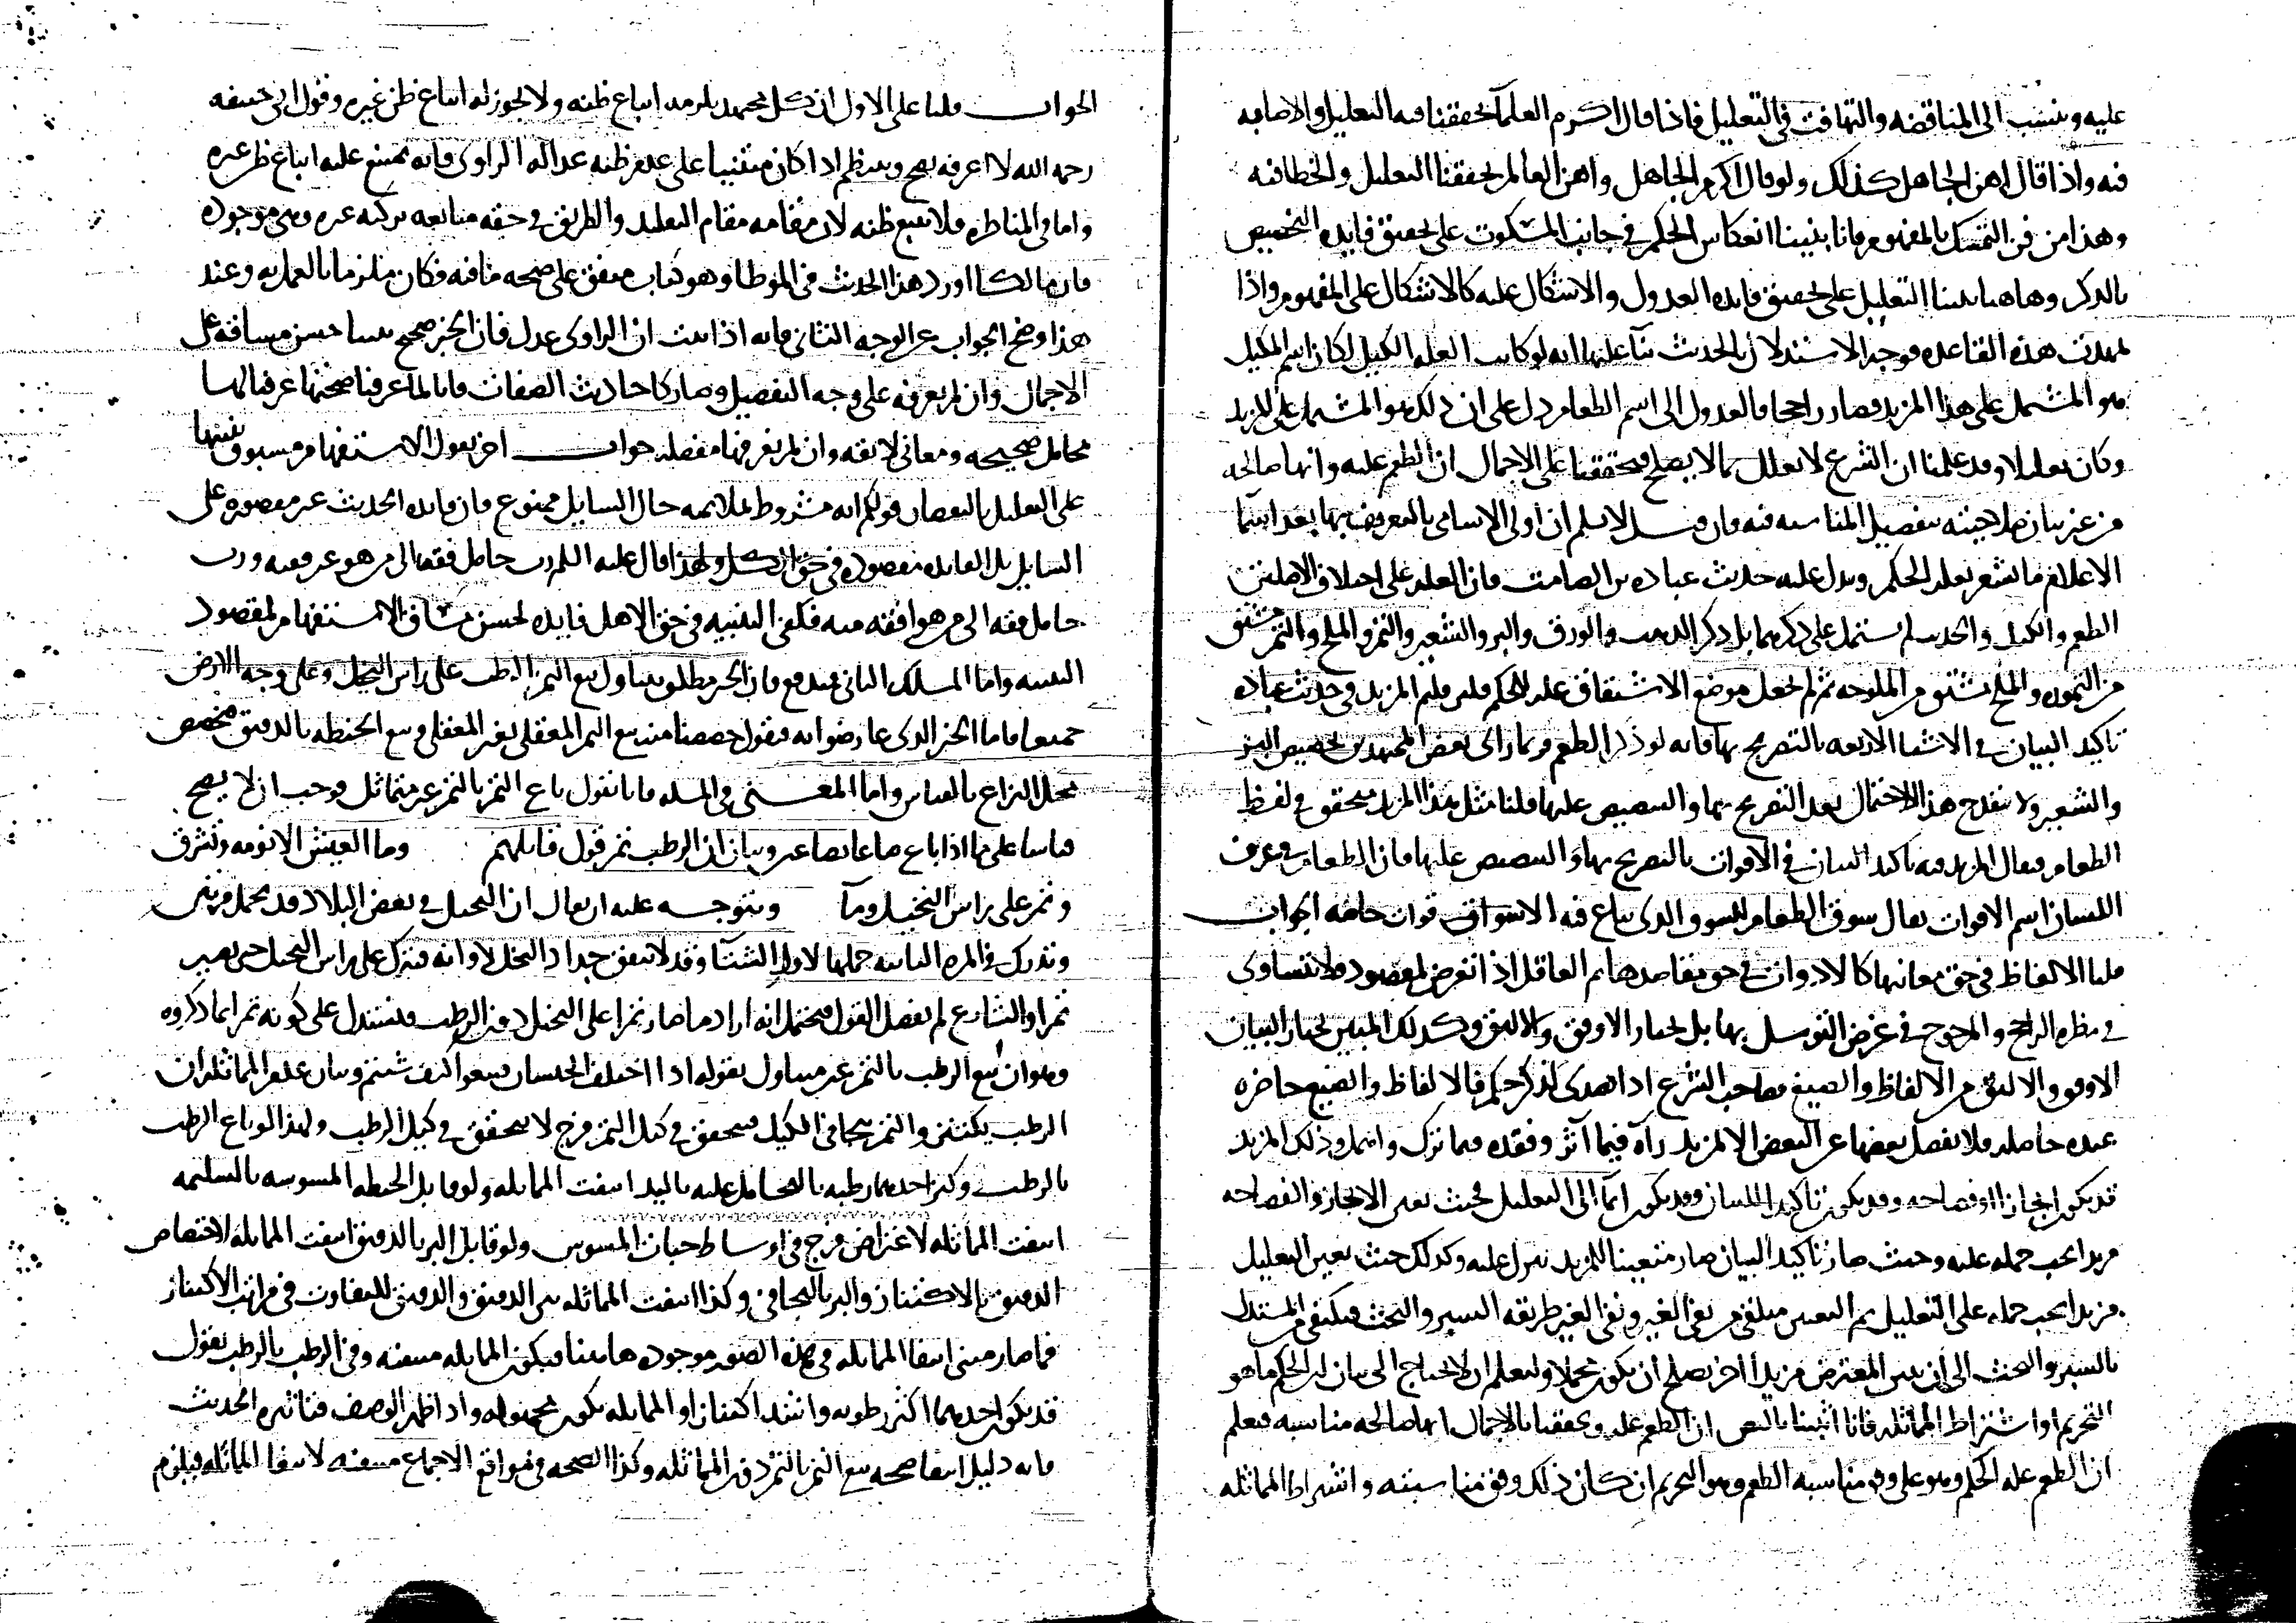 عليه وينسب الى المناقضه والتهافت في التعليل فاذا قال اكرم العلما تحققنا فيه التعليل والاصابه
فيه واذا قال اهن الجاهل كذلك ولو قال اكرم الجاهل واهن العالم تحققنا التعليل والخطا فيه
وهذا من فن التمسك بالمفهوم فانا بنينا انعكاس الحكم في جانب المسكوت على تحقيق فايده التخصيص
بالذكر وهاهنا بنينا التعليل على تحقيق فايده العدول والاشكال عليه كالاشكال على المفهوم واذا
تمهدت هذه القاعده فوجه الاستدلال بالحديث بنآ عليها انه لو كانت العله الكيل لكان اسم المكيل
هو المشتمل على هذا المزيد فصار راجحا فالعدول الى اسم الطعام دل على ان ذلك هو المشتمل على المزيد
وكان تعليلا وقد علمنا ان الشرع لا يعلل بما لا يصلح فتحققنا على الاجمال ان الطعم عليه وانها صالحه
من غير بيان صلاحيته بتفصيل المناسبه فيه فان قيل لا نسلم ان اولى الاسامي بالتعريف بها بعد اسما
الاعلام ما يشعر بعله الحكم ويدل عليه حديث عباده بن الصامت فان العله على اختلاف الاصلين
الطعم والكيل والحديث لم يشتمل على ذكرهما بل ذكر الذهب والورق والبر والشعير والتمر والملح والتمر مشتق
من التموه والملح مشتق من الملوحه ثم لم تجعل موضع الاشتقاق عله للحكم فلين قلتم المزيد في حديث عباده
تاكيد البيان في الاشيا الاربعه بالتصريح بها فانه لو ذكر الطعم ربما راى بعض المجتهدين تخصيص البر
والشعير ولا ينقدح هذا الاحتمال بعد التصريح بهما والتنصيص عليها قلنا مثل هذا المزيد متحقق في لفظ
الطعام فيقال المزيد فيه تاكيد البيان في الاقوات بالتصريح بها والتنصيص عليها فان الطعام في عرف
اللسان اسم الاقوات يقال سوق الطعام للسوق الذي يباع فيه الاسواق قوات خاصه الجواب
قلنا الالفاظ في حق معانيها كالادوات في حق مقاصدها ثم العاقل اذا تعرض لمقصود فلا تتساوى
في نظره الراجح والمرجوح في غرض التوسل بها بل يختار الاوفق والاليق وكذلك المبين يختار البيان
الاوفق والاليق من الالفاظ والصيغ فصاحب الشرع اذا اهدى لذكر حكم فالالفاظ والصيغ حاضره
عنده حاصله فلا يفضل بعضها عن البعض الا لمزيد رآه فيما آثر وفقده فيما ترك واهمل وذلك المزيد
قد يكون ايجازا او فصاحه وقد يكون تاكيدا للسان وقد يكون ايمآ الى التعليل فحيث تعين الايجاز والفصاحه
مزيدا يجب حمله عليه وحيث صار تاكيد البيان صار متعينا للمزيد نزل عليه وكذلك حيث تعين التعليل
مزيدا يجب حمله على التعليل ثم التعين متلقى من نفي الغير ونفي الغير طريقه السبر والبحث فيكتفى من المستدل
بالسبر والبحث الى ان يبين المعترض مزيدا اخر يصلح ان يكون محملا وليعلم انا لا نحتاج الى بيان ان الحكم ما هو
التحريم او اشتراط المماثله فانا اثبتنا بالنص ان الطعم عله وتحققنا بالاجمال انها صالحه مناسبه فيعلم
ان الطعم عله الحكم وهو على وفق مناسبه الطعم وهو التحريم ان كان ذلك وفق مناسبته واشتراط المماثله
الجواب قلنا على الاول ان كل مجتهد يلزمه اتباع ظنه ولا يجوز له اتباع ظن غيره وقول ابي حنيفه
رحمه الله لا اعرفه يصح وينتظم اذا كان مبتنيا على عدم ظنه عداله الراوي فانه يمتنع عليه اتباع ظن غيره
واما في المناظره فلا نتبع ظنه لان مقامه مقام التقليد والطريق في حقه متابعه تزكيه غيره وهي موجوده
فان مالكا اورد هذا الحديث في الموطا وهو كتاب متفق على صحه ما فيه فكان ملزما بالعمل به وعند
هذا وضح الجواب عن الوجه الثاني فانه اذا ثبت ان الراوي عدل فان الخبر صحيح تبينا حسن مساقه على
الاجمال وان لم نعرفه على وجه التفصيل وصار كاحاديث الصفات فانا لما عرفنا صحتها عرفنا لها
محامل صحيحه ومعاني لايقه وان لم نعرفها مفصله جواب اخر نقول الاستفهام مسبوق بفيها
على التعليل بالنقصان قولكم انه مشروط لملايمه حال السايل ممنوع فان فايده الحديث غير مقصوره على
السايل بل الفايده مقصوده في حق الكل ولهذا قال عليه السلم رب حامل فقه الى من هو غير فقيه ورب
حامل فقه الى من هو افقه منه فكفى التنبيه في حق الاهل فايده لحسن مساق الاستفهام لمقصود
التنبيه واما المسلك الثاني فيندفع فان الخبر مطلق يتناول بيع التمر بالرطب على راس النخيل وعلى وجه الارض
جميعا فاما الخبر الذي عارضوا به فنقول خصصنا منه بيع التمر المعقلي بغير المعقلي وبيع الحنطه بالدقيق مخصص
محل النزاع بالقياس واما المعنى في المسله فانا نقول باع التمر بالتمر غير متماثل فوجب ان لا يصح
قياسا على ما اذا باع صاعا بصاعين وبيان ان الرطب تمر قول قايلهم وما العيش الا نومه وتشرق
وتمر على راس النخيل ومآ ويتوجه عليه ان يقال ان النخيل في بعض البلاد قد يحمل مرتين
وتدرك في المره الثانيه حملها لاول الشتآ وقد لا يتفق جداد النخل لاوانه فيترك على راس النخيل حتى يصير
تمرا والشارع لم يفصل القول فيحتمل انه اراد ما صار تمرا على النخيل دون الرطب فيستدل على كونه تمرا بما ذكروه
وهو ان بيع الرطب بالتمر غير متناول بقوله اذا اختلف الجنسان فبيعوا كيف شئتم وبيان عدم المماثله ان
الرطب يكتنز والتمر يتجافى في الكيل فيتحقق في كيل التمر فرج لا يتحقق في كيل الرطب ولهذا لو باع الرطب
بالرطب وكبر احدهما رطبه بالتحامل عليه باليد انتفت المماثله ولو قابل الحنطه المسوسه بالسليمه
انتفت المماثله لاعتراض فرج في اوساط حبات المسوس ولو قابل البر بالدقيق انتفت المماثله لاختصاص
الدقيق بالاكتناز والبر بالتجافي وكذا انتفت المماثله بين الدقيق والدقيق للتفاوت في مراتب الاكتناز
فما صار مبنى انتفا المماثله في هذه الصور موجوده هاهنا فيكون المماثله منتفيه وفي الرطب بالرطب نقول
قد يكون احدهما اكثر رطوبه واشد اكتنازا والمماثله تكون مجهوله واذا ظهر الوصف فتاثيره الحديث
فانه دليل انتفا صحه بيع التمر بالتمر دون المماثله وكذا الصحه في مواقع الاجماع منتفيه لانتفا المماثله فيلزم